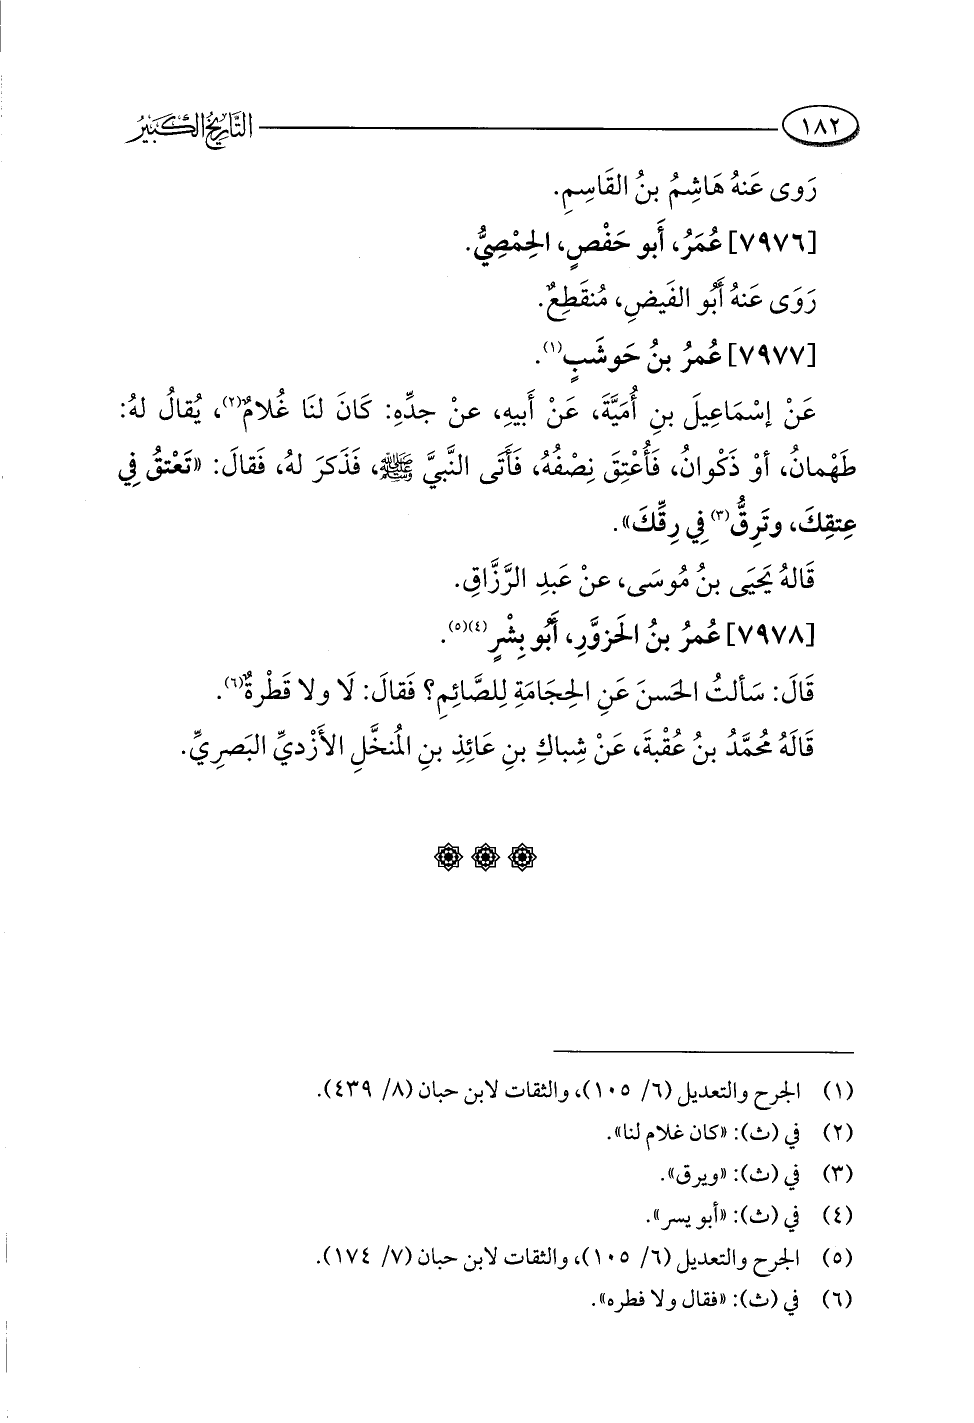 ١٨٢ التَّارِيخُ الكَبِيرُ
رَوى عَنهُ هَاشِمُ بنُ القَاسِمِ.
[٧٩٧٦] عُمَرُ، أَبو حَفْصٍ، الحِمْصِيُّ.
رَوَى عَنهُ أَبُو الفَيضِ، مُنقَطِعٌ.
[٧٩٧٧] عُمرُ بنُ حَوشَبٍ(١).
عَنْ إسْمَاعِيلَ بنِ أُمَيَّةَ، عَنْ أَبيهِ، عنْ جدِّهِ: كَانَ لنَا غُلامٌ(٢)، يُقالُ لهُ:
طَهْمانُ، أوْ ذَكْوانُ، فَأُعْتِقَ نِصْفُهُ، فَأَتَى النَّبيَّ ﷺ، فَذَكرَ لهُ، فَقالَ: «تَعْتقُ فِي
عِتقِكَ، وتَرِقُّ(٣) فِي رِقِّكَ».
قَالهُ يَحيَى بنُ مُوسَى، عنْ عَبدِ الرَّزَّاقِ.
[٧٩٧٨] عُمرُ بنُ الحَزوَّرِ، أَبُو بِشْرٍ(٤)(٥).
قَالَ: سَألتُ الحَسنَ عَنِ الحِجَامَةِ لِلصَّائِمِ؟ فَقالَ: لَا ولا قَطْرةٌ(٦).
قَالَهُ مُحمَّدُ بنُ عُقْبةَ، عَنْ شِباكِ بنِ عَائِذِ بنِ المُنخَّلِ الأَزْديِّ البَصرِيِّ.
(١) الجرح والتعديل (٦/ ١٠٥)، والثقات لابن حبان (٨/ ٤٣٩).
(٢) في (ث): «كان غلام لنا».
(٣) في (ث): «ويرق».
(٤) في (ث): «أبو يسر».
(٥) الجرح والتعديل (٦/ ١٠٥)، والثقات لابن حبان (٧/ ١٧٤).
(٦) في (ث): «فقال ولا فطره».